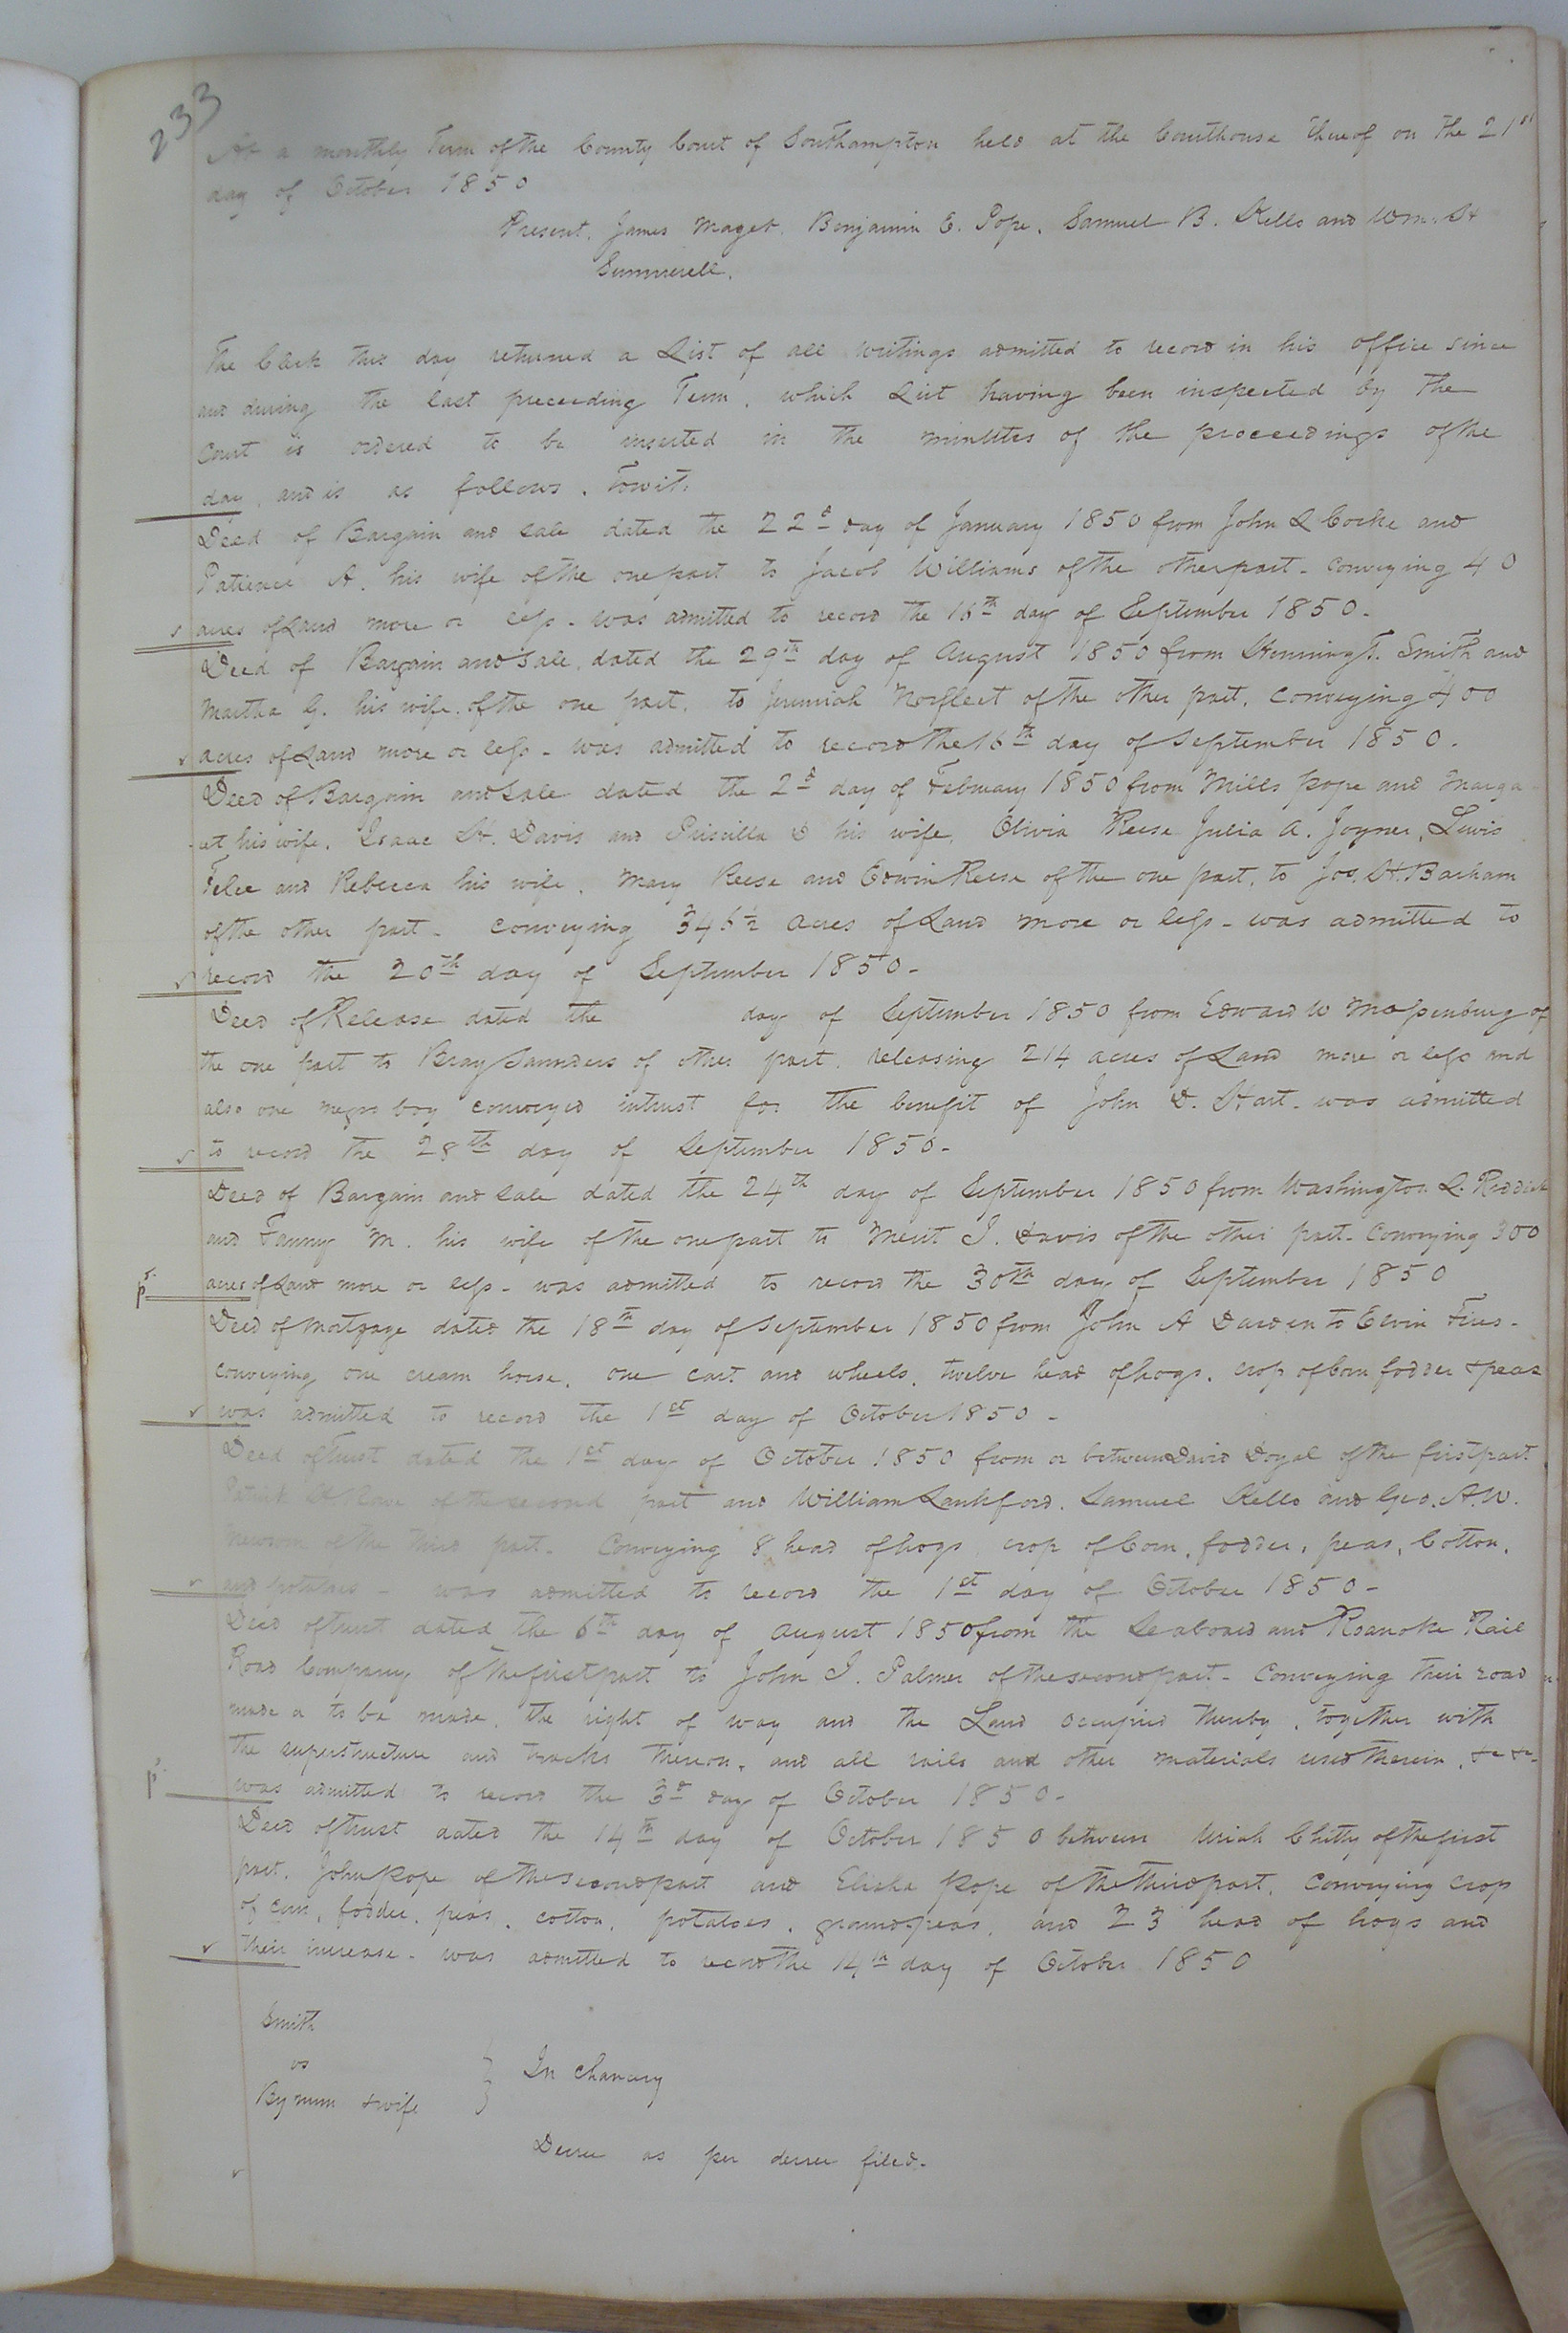 233
At a monthly Term of the County Court of Southampton held at the Courthouse thereof on the 21st
day of October 1850
Present, James Maget, Benjamin E. Pope, Samuel B. Kello and Wm. H
Summerell.
The Clerk this day returned a List of all writings admitted to record in his office since
and during the last preceeding Term, which List having been inspected by the
Court is ordered to be inserted in the minutes of the proceedings of the
day, and is as follows, Towit:
Deed of Bargain and sale dated the 22d day of January 1850 from John L Cocke and
Patience A. his wife of the one part to Jacob Williams of the other part - conveying 40
acres of Land more or less - was admitted to record the 16th day of September 1850.
Deed of Bargain and Sale, dated the 29th day of August 1850 from Henning T. Smith and
Martha G. his wife of the one part, to Jeremiah Norfleet of the other part, conveying 400
acres of Land more or less - was admitted to record the 16th day of September 1850.
Deed of Bargain and Sale dated the 2d day of February 1850 from Mills Pope and Marga
-et his wife, Isaac H. Davis and Priscilla D his wife, Olivia Reese Julia A. Joyner, Lewis
and Rebecca his wife, Mary Reese and Edwin Reese of the one part, to Jos. H. Barham
of the other part - conveying 346½ acres of Land more or less - was admitted to
record the 20th day of September 1850 -
Deed of Release dated the day of September 1850 from Edward W Massenburg of
the one part to Bray Saunders of other part, releasing 214 acres of Land more or less and
also one negro boy conveyed intrust for the benefit of John D. Hart - was admitted
to record the 28th day of September 1850 -
Deed of Bargain and sale dated the 24th day of September 1850 from Washington L. Riddick
and Fanny M. his wife of the one part to Merit I. Davis of the other part - conveying 300
acres of Land more or less - was admitted to record the 30th day of September 1850
Deed of Mortgage dated the 18th day of September 1850 from John A Darden to Elvin
conveying one cream horse, one cart and wheels, twelve head of hogs, crop of Corn fodder & peas
was admitted to record the 1st day of October 1850 -
Deed of Trust dated the 1st day of October 1850 from or between David Doyal of the first part
Patrick H Rowe of the second part and William Lankford, Samuel Kello and Geo. A. W.
Newsom of the third part - Conveying 8 head of hogs crop of Corn, fodder, peas, Cotton,
and potatoes - was admitted to record the 1st day of October 1850 -
Deed of trust dated the 6th day of August 1850 from the Seaboard and Roanoke Rail
Road Company of the first part to John I. Palmer of the second part - Conveying their road
made or to be made, the right of way and the Land occupied thereby, together with
the superstructure and tracks thereon, and all rails and other materials used therein, &c &c -
p was admitted to record the 3d day of October 1850 -
Deed of trust dated the 14th day of October 1850 between Uriah Chitty of the first
part, John Pope of the second part and Elisha Pope of the third part, conveying crop
of corn, fodder, peas, cotton, potatoes, ground peas, and 23 head of hogs and
their increase - was admitted to record the 14th day of October 1850
Smith
vs
Bynum & wife
} In chancery
Decree as per decree filed -